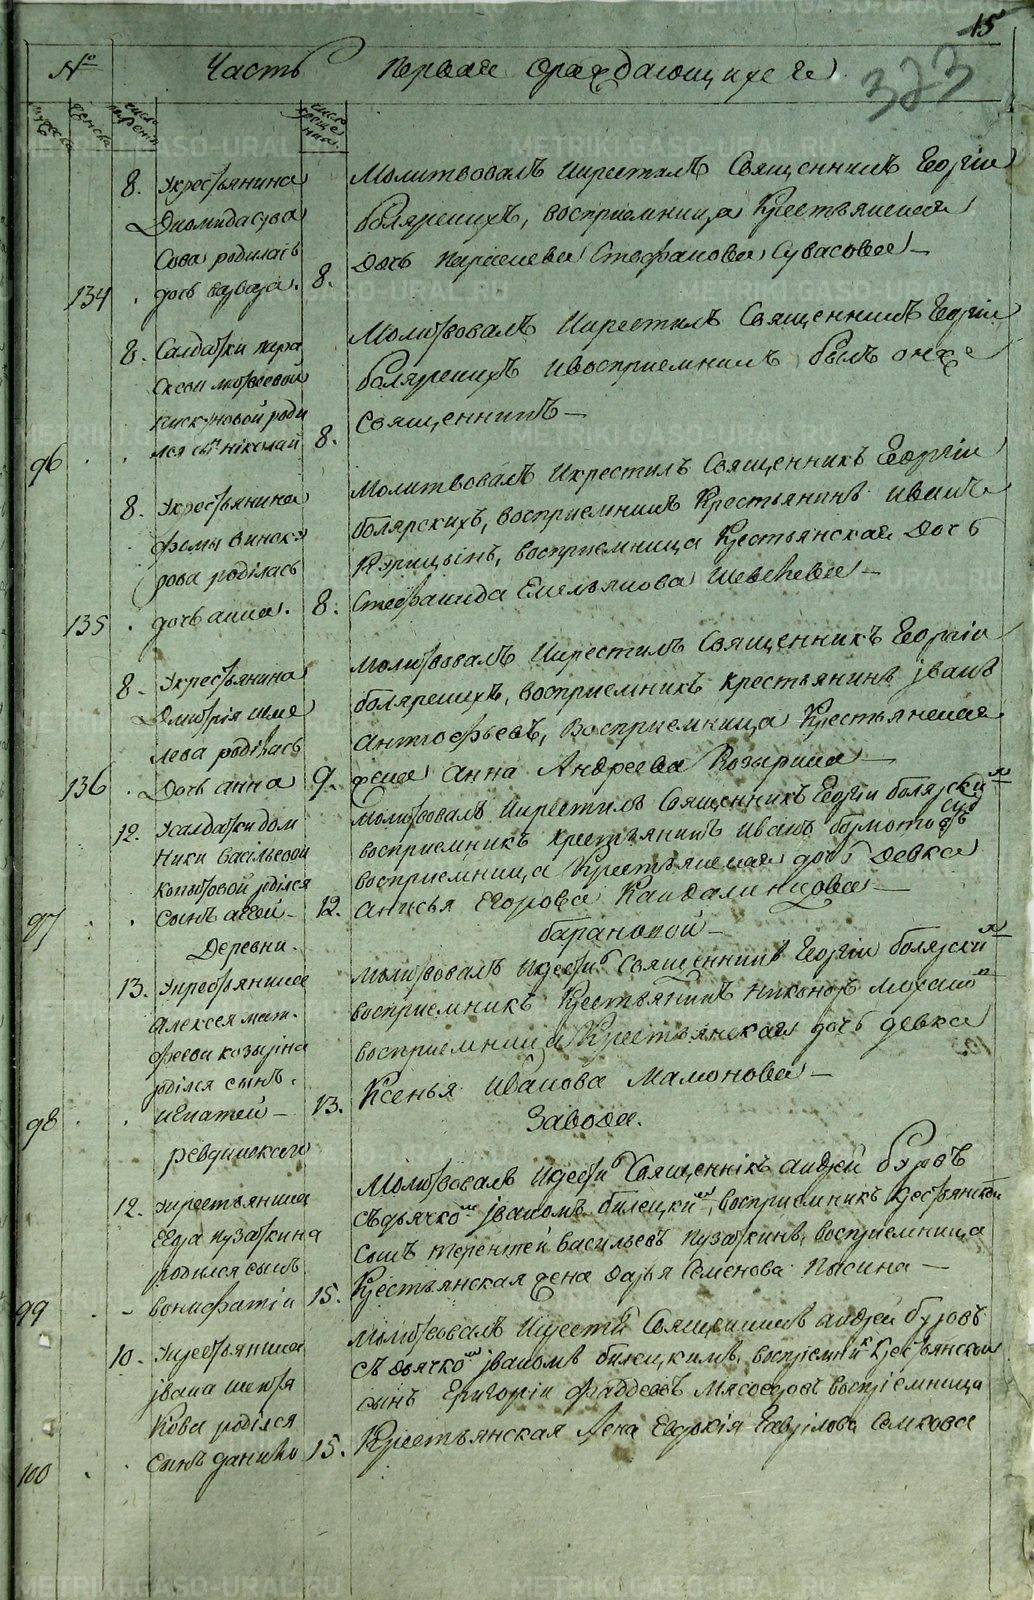 15
323
№ Часть первая о раждающихся
мужеска женска число рожденiя число крещенiя
8. Укрестьянина
Диомида Сува
сова родилась
134 дочь варвара. 8.
Молитвовалъ икрестилъ Священникъ Георгiи
болярскихъ, восприемница крестьянская
дочь параскева Стефанова Сувасова
8. Салдатки пара
скеви матвеевой
пискуновой роди
96 лся сынъ нiколаи 8.
Молитвовалъ икрестилъ Священникъ Георгiи
болярскихъ ивосприемникъ былъ онже
священникъ
8. Укрестьянина
фомы виноку
рова родiлась
135 дочь анна. 8.
Молитвовалъ икрестилъ Священникъ Георгiи
болярскихъ, восприемникъ крестьянинъ иванъ
восприемница крестьянская дочь
Стефанида Емельянова
8. Укрестьянина
Дмитрiя шме
лева родiлась
136 Дочь анна 9.
молитвовалъ икрестилъ Священникъ Георгiи
болярскихъ, восприемникъ крестьянинъ iванъ
антоофьевъ, Восприемница Крестьянская
жена Анна Андреева Козырина
12. Усалдатки дом
ники васiльевой
копытовой родiлся
97 сынъ 12.
Молитвовалъ икрестилъ Священникъ Георгiи болярскихъ
восприемникъ крестьянинъ иванъ бормотовъ
восприемница крестьянская дочь девка
анисья Егорова Кандалинцова
Деревни барановой
13. Укрестьянина
Алексея мат
феева козырiна
родiлся сынъ
98 игнатей 13.
Молитвовалъ икрести Священникъ Георгiи болярски
восприемникъ крестьянинъ никоноръ
восприемница Крестьянская дочь девка
Ксенья Иванова Мамонова
ревдинскаго Завода.
12. укрестьянина
Егора пузаткина
родился сынъ
99 вонифатiи 15.
Молитвовалъ икрести Священнiкъ андрей буровъ
съдьячкомъ iваномъ билецкимъ, восприемникъ крестьянской
сынъ терентей васильевъ пузаткинъ, восприемница
Крестьянская жена Дарья Семенова
10. Укрестьянина
iвана шетя
кова родiлся
100 сынъ данило 15.
Молитвовалъ икрестил Священникъ андрей буровъ
съ дьячкомъ iваномъ билецкимъ, воспрiемникъ крестьянской
сынъ Григорiи фаддеевъ мясоедовъ воспрiемница
Крестьянская жена Евдокiя Гаврiлова
METRIKI.GASO-URAL.RU